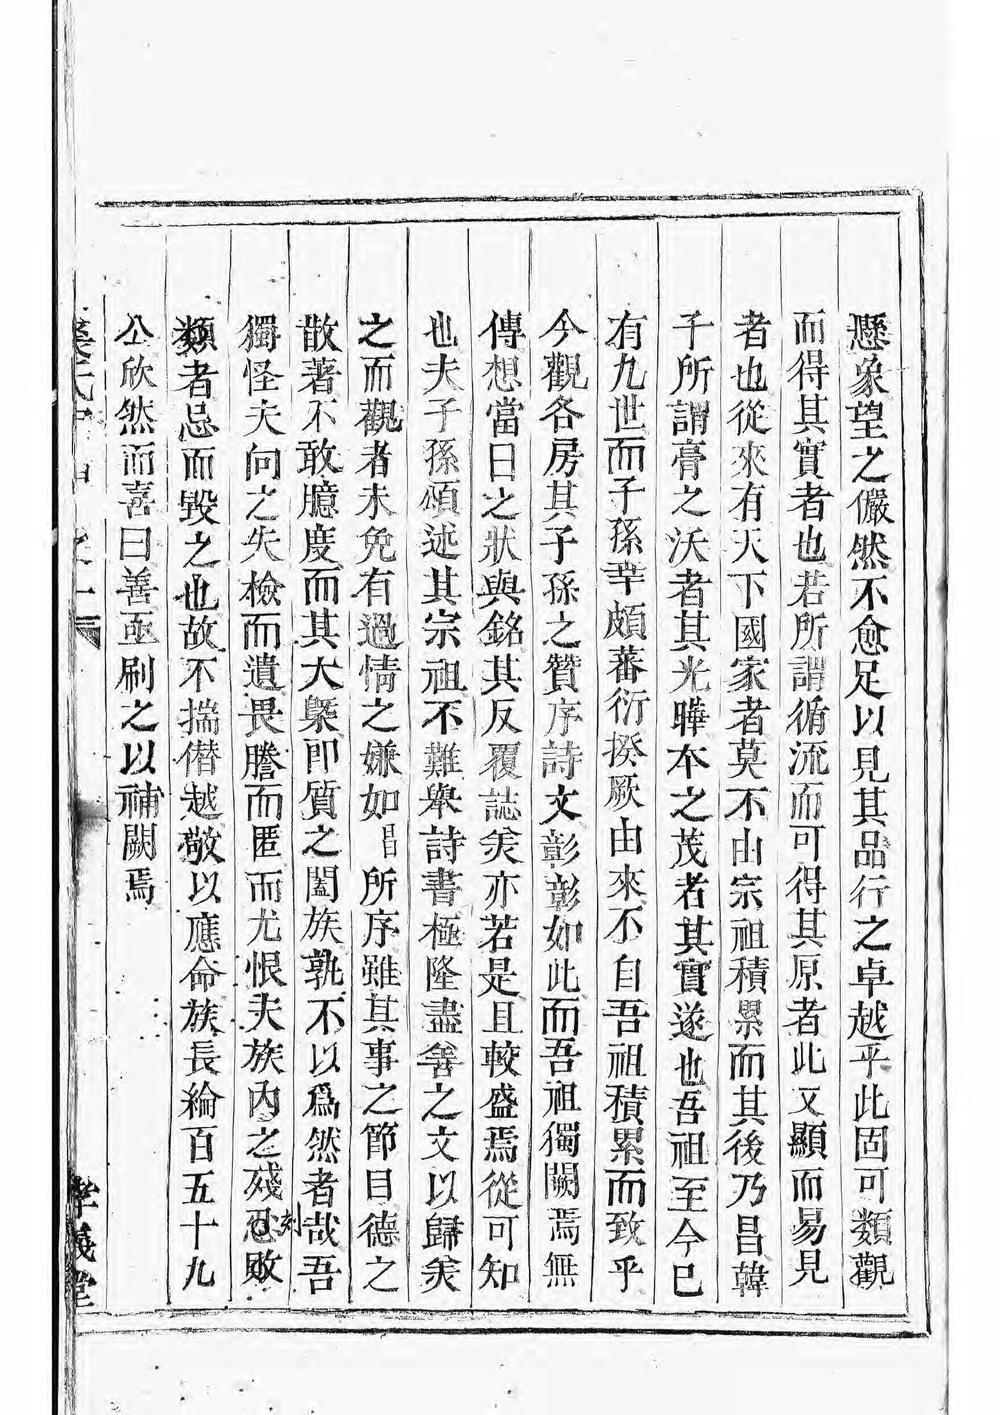 懸象望之儼然不愈足以見其品行之卓越乎此固可類觀
而得其實者也若所謂循流而可得其原者此又顯而易見
者也從來有天下國家者莫不由宗祖積累而其後乃昌韓
子所謂膏之沃者其光曄本之茂者其實遂也吾祖至今已
有九世而子孫幸頗蕃衍揆厥由來不自吾祖積累而致乎
今觀各房其子孫之贊序詩文彰彰如此而吾祖獨闕焉無
傳想當日之狀與銘其反覆誌矣亦若是且較盛焉從可知
也夫子孫頌述其宗祖不難舉詩書極隆盡善之文以歸矣
之而觀者未免有過情之嫌如昌所序雖其事之節目德之
散著不敢臆度而其大槩即質之闔族孰不以爲然者哉吾
獨怪夫向之失檢而遺畏謄而匿而尤恨夫族內之殘忍刻敗
類者忌而毀之也故不揣僭越敬以應命族長綸百五十九
公欣然而喜曰善亟刷之以補闕焉
孝義堂